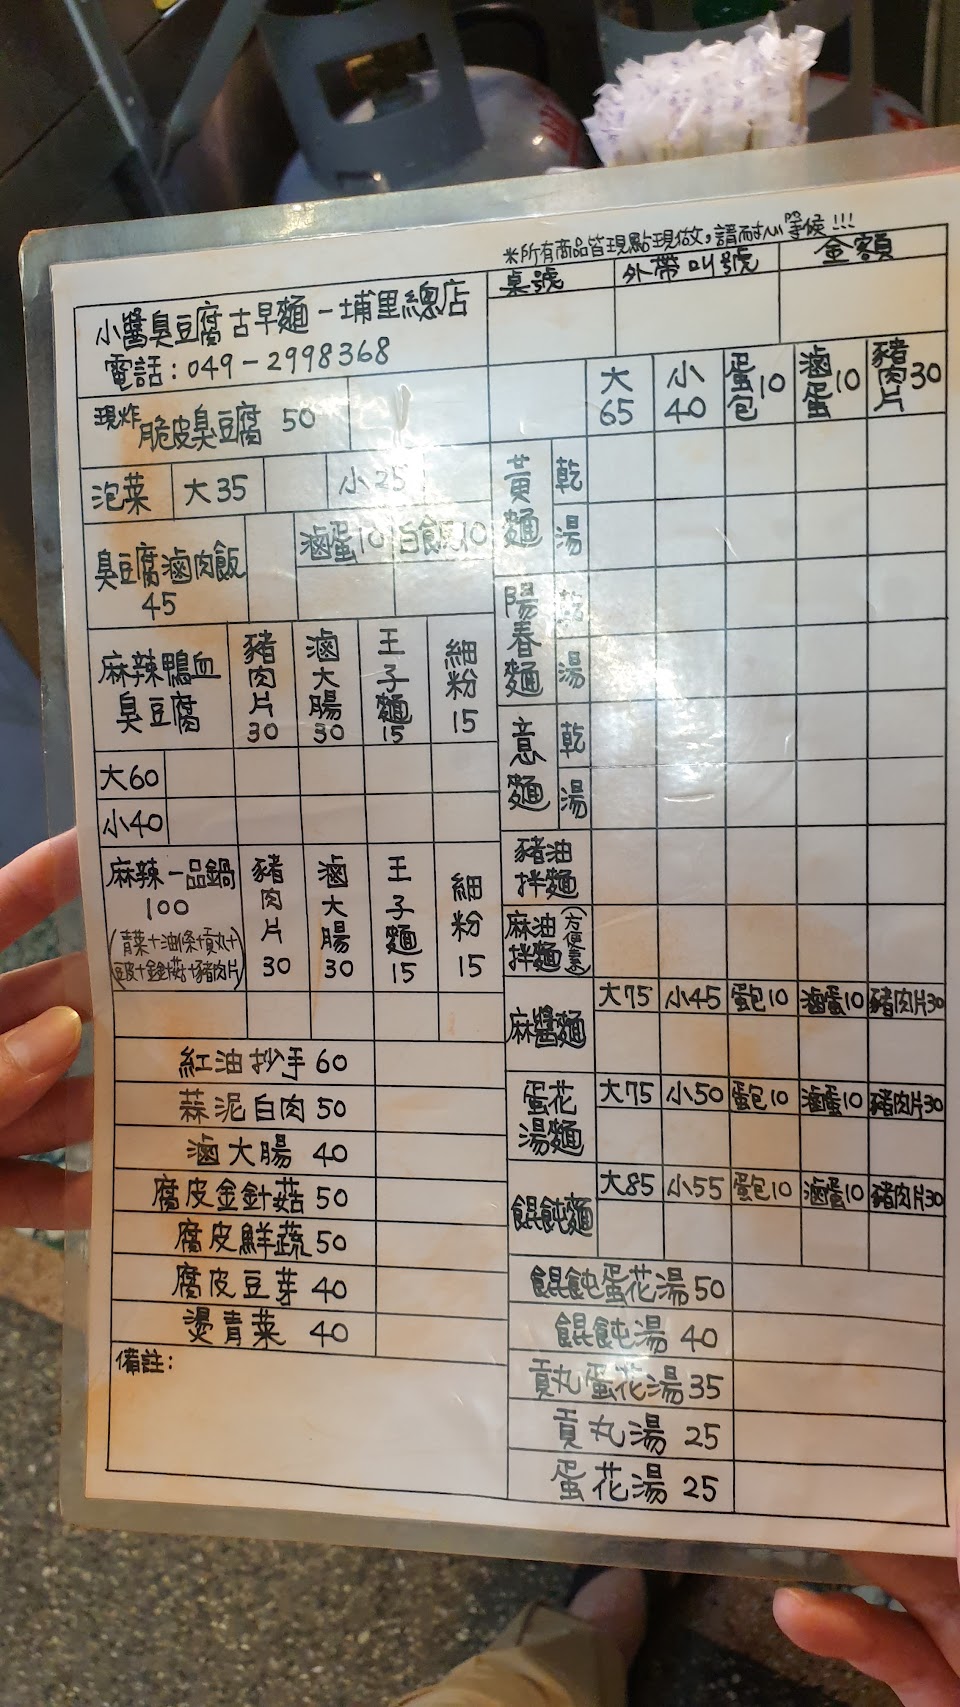 ※所有商品皆現點現做,請耐心等候!!!
小醬臭豆腐古早麵-埔里總店
電話:049-2998368
桌號 外帶叫號 金額
現炸脆皮臭豆腐 50
泡菜 大35 小25
臭豆腐滷肉飯 45 滷蛋10 白飯10
麻辣鴨血臭豆腐 豬肉片30 滷大腸30 王子麵15 細粉15
大60
小40
麻辣一品鍋 100 豬肉片30 滷大腸30 王子麵15 細粉15
(青菜+油條+貢丸+豆皮+金針菇+豬肉片)
紅油抄手 60
蒜泥白肉 50
滷大腸 40
腐皮金針菇 50
腐皮鮮蔬 50
腐皮豆芽 40
燙青菜 40
備註:
大65 小40 蛋包10 滷蛋10 豬肉片30
黃麵 乾 湯
陽春麵 乾 湯
意麵 乾 湯
豬油拌麵
麻油拌麵(方便素)
麻醬麵 大75 小45 蛋包10 滷蛋10 豬肉片30
蛋花湯麵 大75 小50 蛋包10 滷蛋10 豬肉片30
餛飩麵 大85 小55 蛋包10 滷蛋10 豬肉片30
餛飩蛋花湯 50
餛飩湯 40
貢丸蛋花湯 35
貢丸湯 25
蛋花湯 25